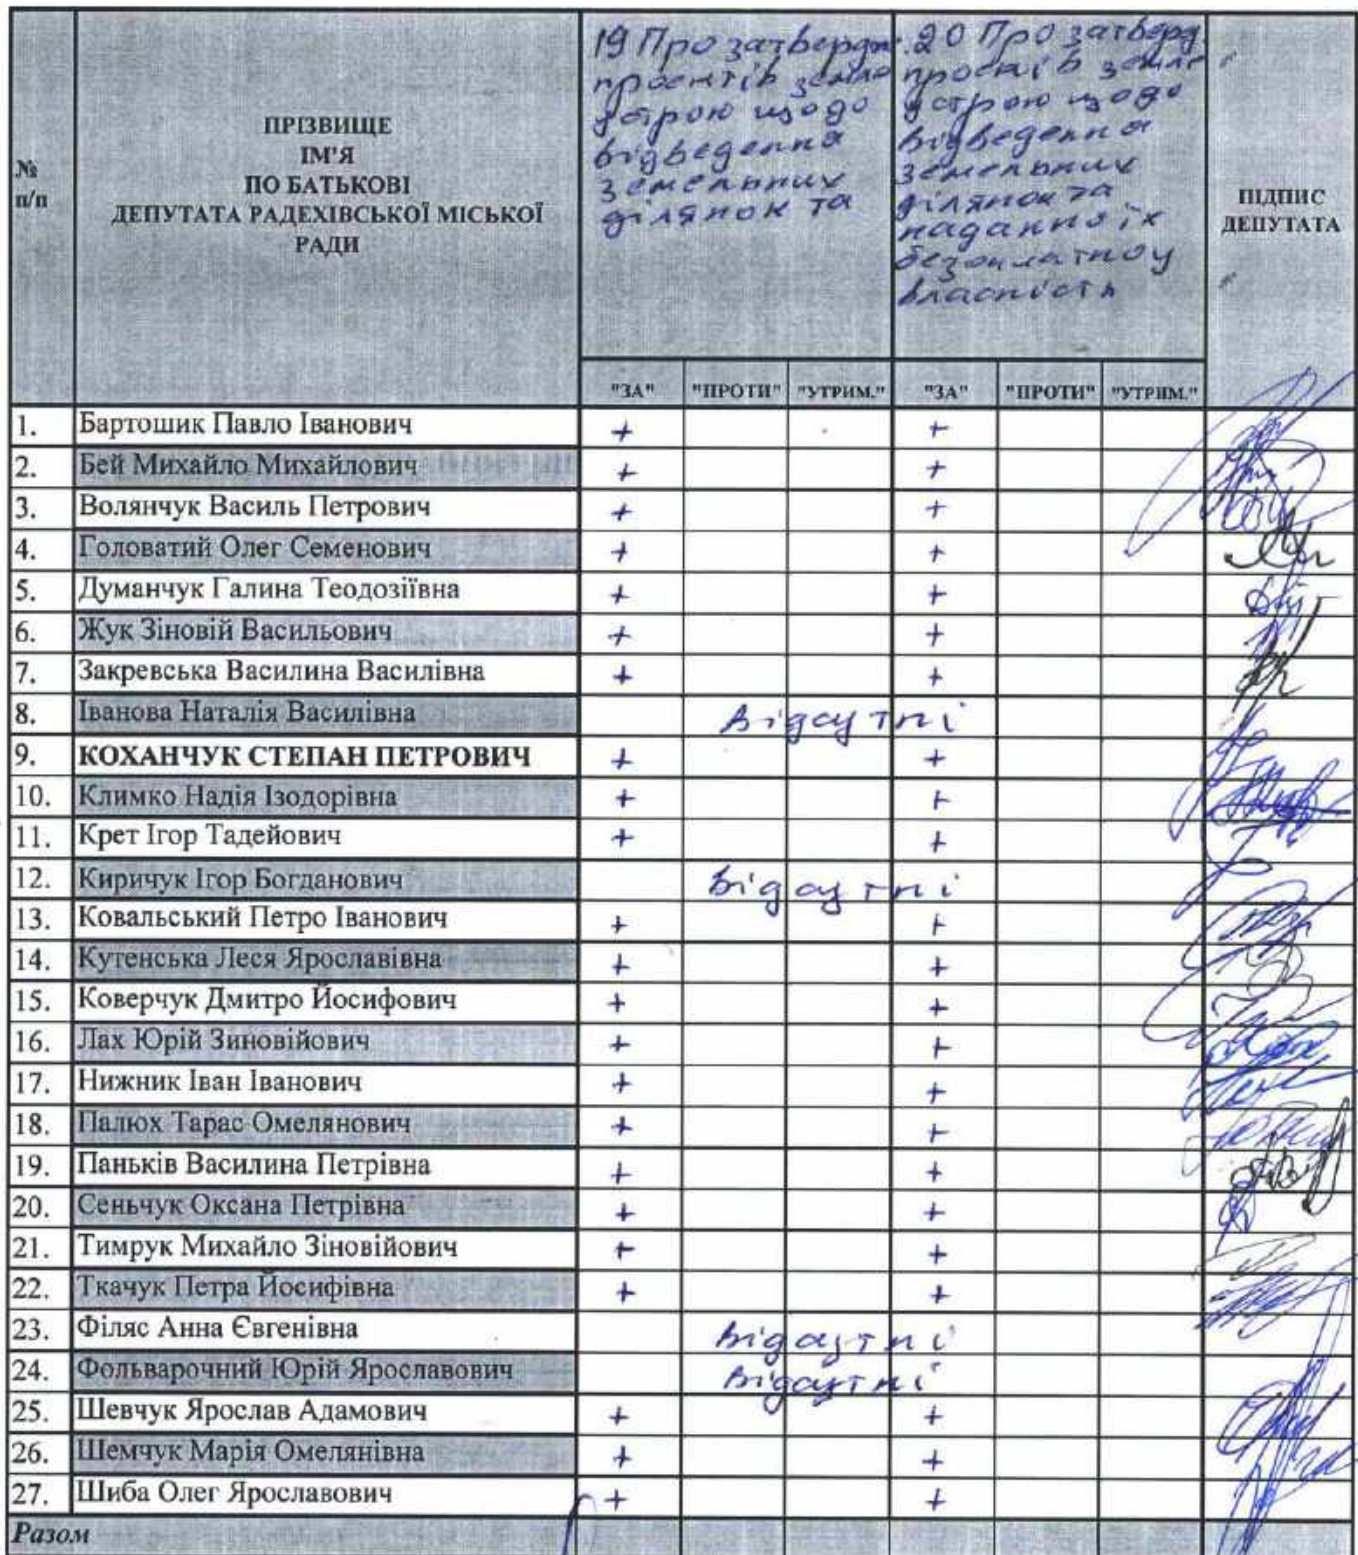 №
п/п
ПРІЗВИЩЕ
ІМ'Я
ПО БАТЬКОВІ
ДЕПУТАТА РАДЕХІВСЬКОЇ МІСЬКОЇ
РАДИ
19 Про затвердж.
проектів земле
устрою щодо
відведення
земельних
ділянок та
20 Про затверд.
проектів земле
устрою щодо
відведення
земельних
ділянок та
надання їх
безоплатно у
власність
ПІДПИС
ДЕПУТАТА
"ЗА" "ПРОТИ" "УТРИМ." "ЗА" "ПРОТИ" "УТРИМ."
1. Бартошик Павло Іванович + +
2. Бей Михайло Михайлович + +
3. Волянчук Василь Петрович + +
4. Головатий Олег Семенович + +
5. Думанчук Галина Теодозіївна + +
6. Жук Зіновій Васильович + +
7. Закревська Василина Василівна + +
8. Іванова Наталія Василівна Відсутні
9. КОХАНЧУК СТЕПАН ПЕТРОВИЧ + +
10. Климко Надія Ізодорівна + +
11. Крет Ігор Тадейович + +
12. Киричук Ігор Богданович Відсутні
13. Ковальський Петро Іванович + +
14. Кутенська Леся Ярославівна + +
15. Коверчук Дмитро Йосифович + +
16. Лах Юрій Зиновійович + +
17. Нижник Іван Іванович + +
18. Палюх Тарас Омелянович + +
19. Паньків Василина Петрівна + +
20. Сеньчук Оксана Петрівна + +
21. Тимрук Михайло Зіновійович + +
22. Ткачук Петра Йосифівна + +
23. Філяс Анна Євгенівна Відсутні
24. Фольварочний Юрій Ярославович Відсутні
25. Шевчук Ярослав Адамович + +
26. Шемчук Марія Омелянівна + +
27. Шиба Олег Ярославович + +
Разом